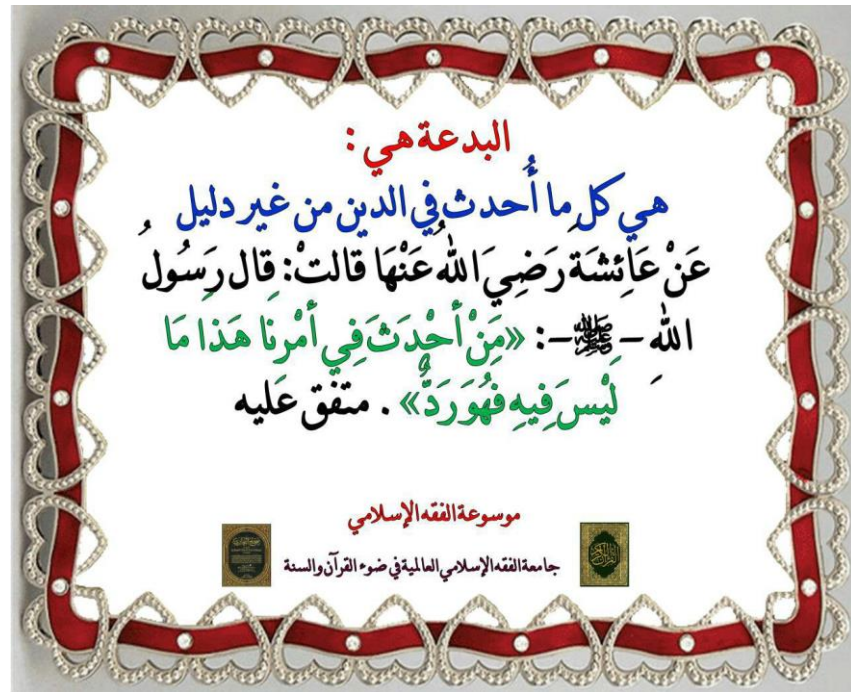 البدعة هي :
هي كل ما أُحدث في الدين من غير دليل
عَنْ عَائِشَةَ رَضِيَ اللهُ عَنْهَا قالتْ: قال رَسُولُ
اللهِ - ﷺ -: «مَنْ أَحْدَثَ فِي أَمْرِنَا هَذَا مَا
لَيْسَ فِيهِ فَهُوَ رَدٌّ» . متفق عليه
موسوعة الفقه الإسلامي
جامعة الفقه الإسلامي العالمية في ضوء القرآن والسنة